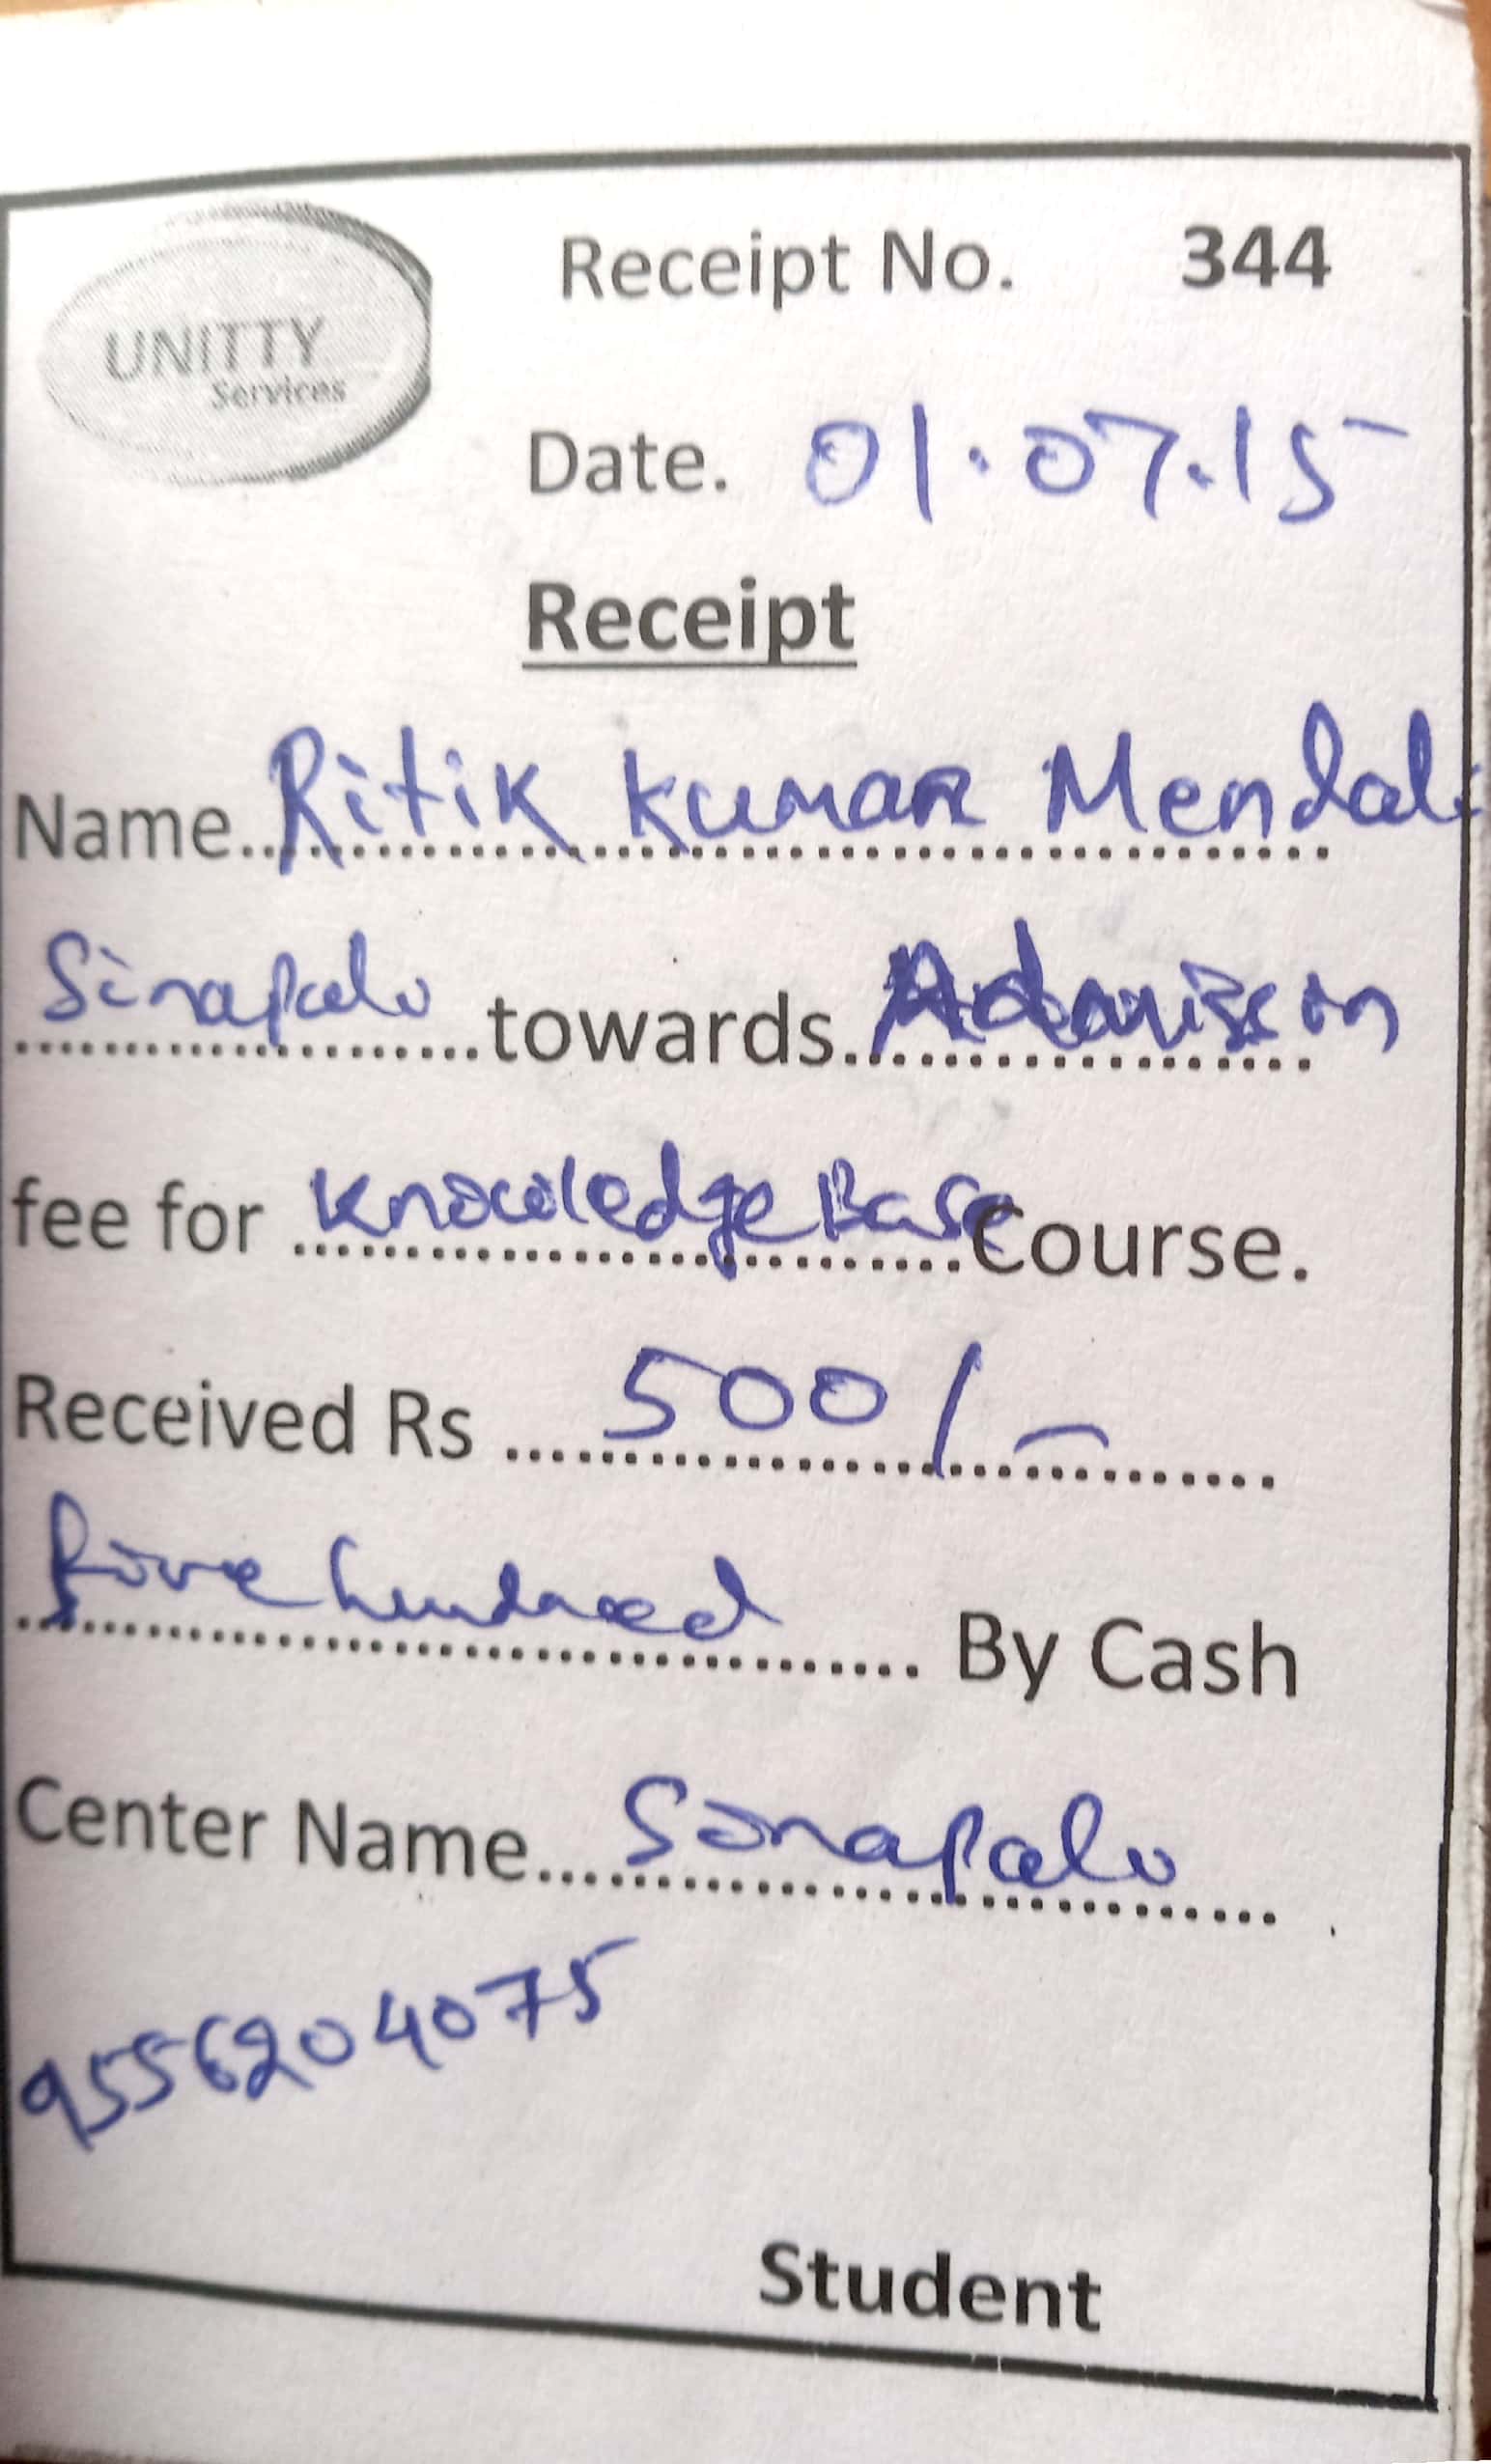 UNITTY
Services
Receipt No. 344
Date. 01.07.15
Receipt
Name Ritik kumar Mendal
Sinapalo towards Admission
fee for Knowledge Base Course.
Received Rs 500/-
five hundred By Cash
Center Name Sinapalo
9556204075
Student